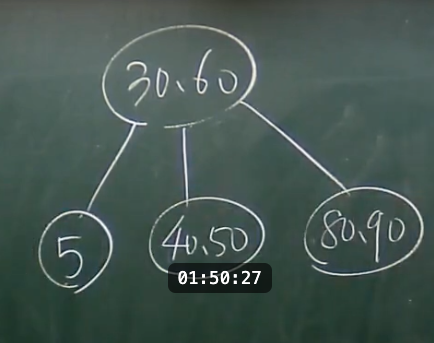 30、60
5
40、50
80、90
01:50:27